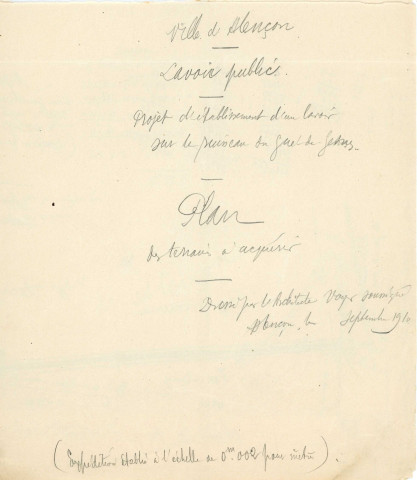 Ville d'Alençon
Lavoirs publics.
Projet d'établissement d'un lavoir
sur le ruisseau du Gué de Gesnes
Plan
des terrains à acquérir
Dressé par l'Architecte Voyer soussigné
Alençon, le Septembre 1910
(Expédition établie à l'échelle de 0m.002 pour mètre).